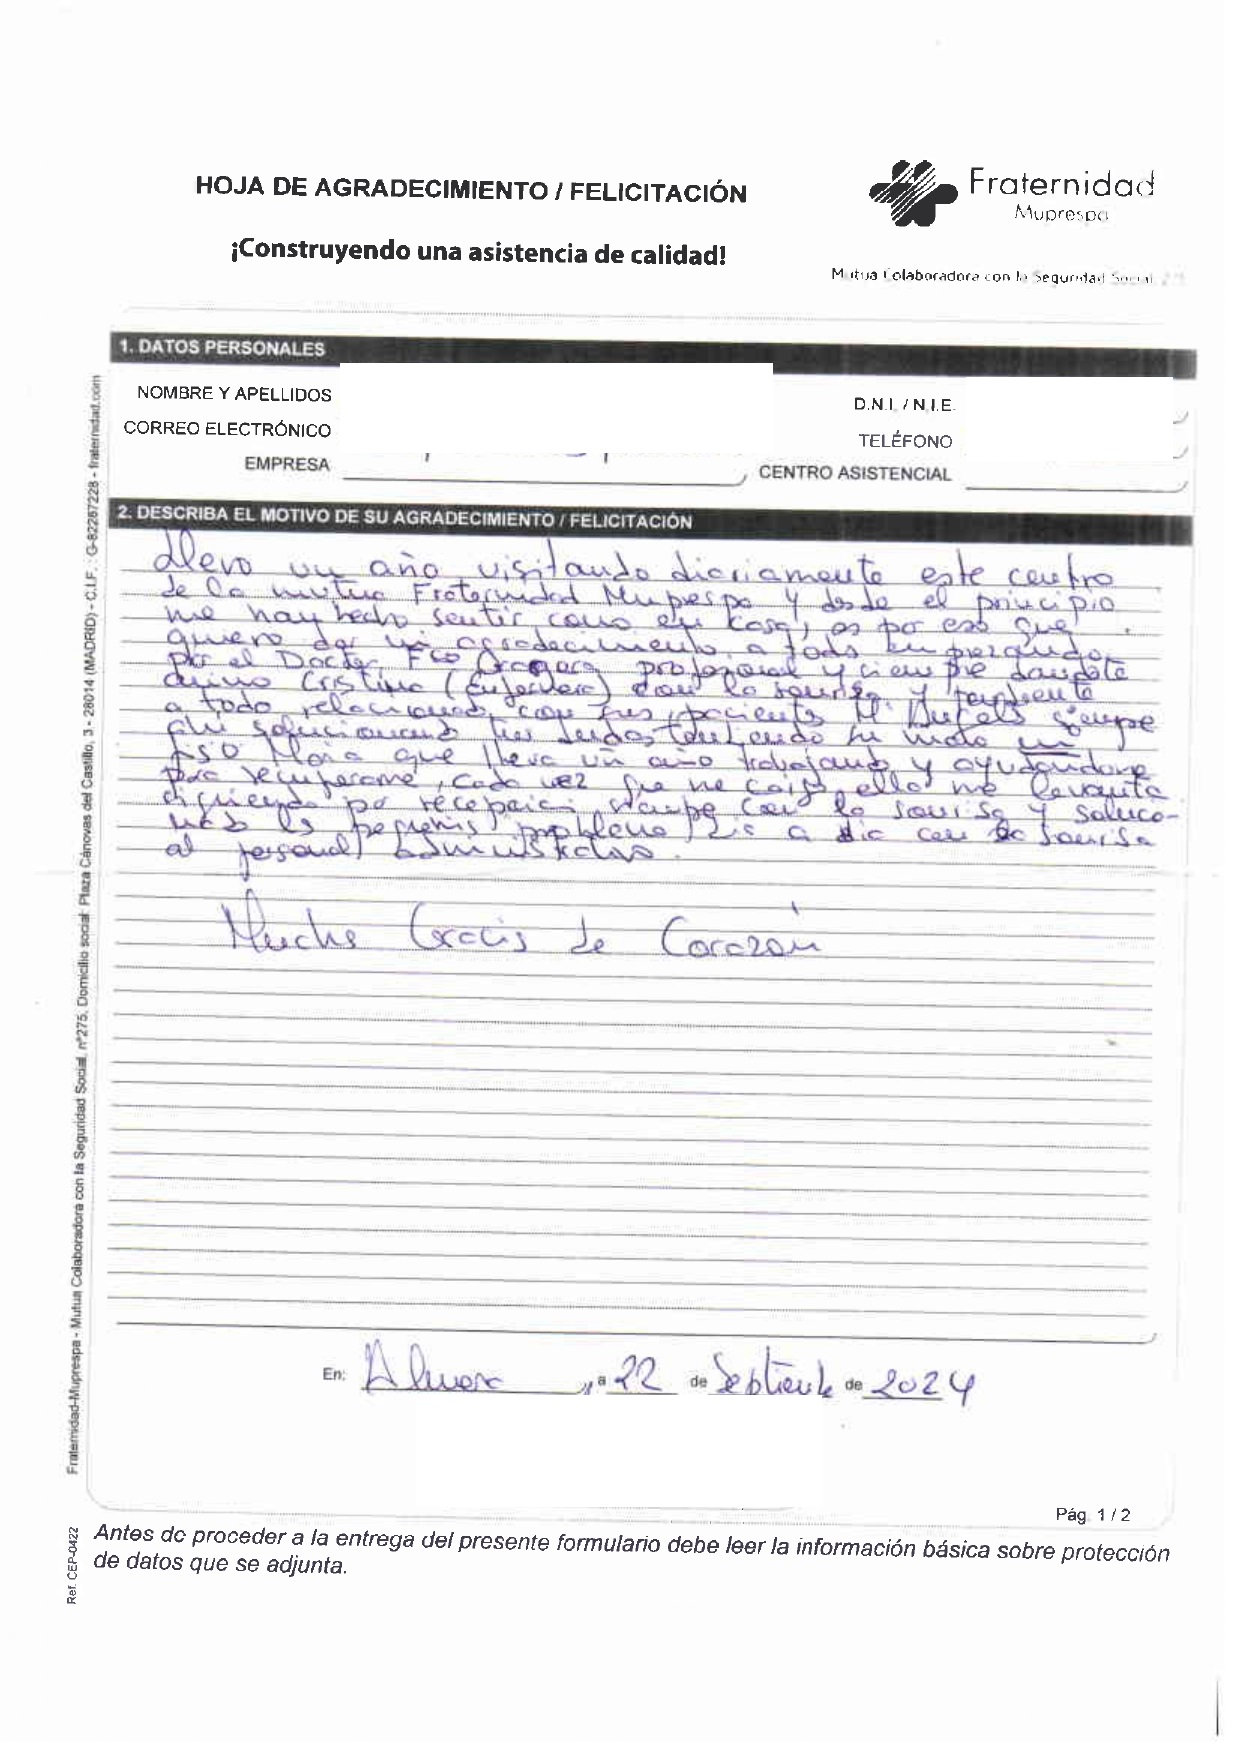 HOJA DE AGRADECIMIENTO / FELICITACIÓN
Fraternidad
Muprespa
¡Construyendo una asistencia de calidad!
Mutua Colaboradora con la Seguridad Social
1. DATOS PERSONALES
NOMBRE Y APELLIDOS
D.N.I. / N.I.E.
CORREO ELECTRÓNICO
TELÉFONO
EMPRESA
CENTRO ASISTENCIAL
2. DESCRIBA EL MOTIVO DE SU AGRADECIMIENTO / FELICITACIÓN
Llevo un año visitando diariamente este centro
de la mutua Fraternidad Muprespa y desde el principio
me han hecho sentir como en casa, es por eso que
quiero dar mi agradecimiento a todos
por el Doctor Fco profesional y siempre
Cristina (Enfermera) con la sonrisa y
a todo relacionado con sus pacientes siempre
solucionando tendiendo su mano
que lleva un año trabajando y ayudandome
para recuperarme, cada vez que me caigo ella me levanta
siguiendo por recepcion siempre con la sonrisa y soluco-
los pequeños problemas dia a dia con la sonrisa
al personal administrativo.
Muchas Gracias de Corazón
En: a 22 de Septiembre de 2024
Pág. 1 / 2
Antes de proceder a la entrega del presente formulario debe leer la información básica sobre protección
de datos que se adjunta.
Fraternidad-Muprespa - Mutua Colaboradora con la Seguridad Social, nº275. Domicilio social: Plaza Cánovas del Castillo, 3 - 28014 (MADRID) - C.I.F. : G-82287228 - fraternidad.com
Ref. CEP-0422